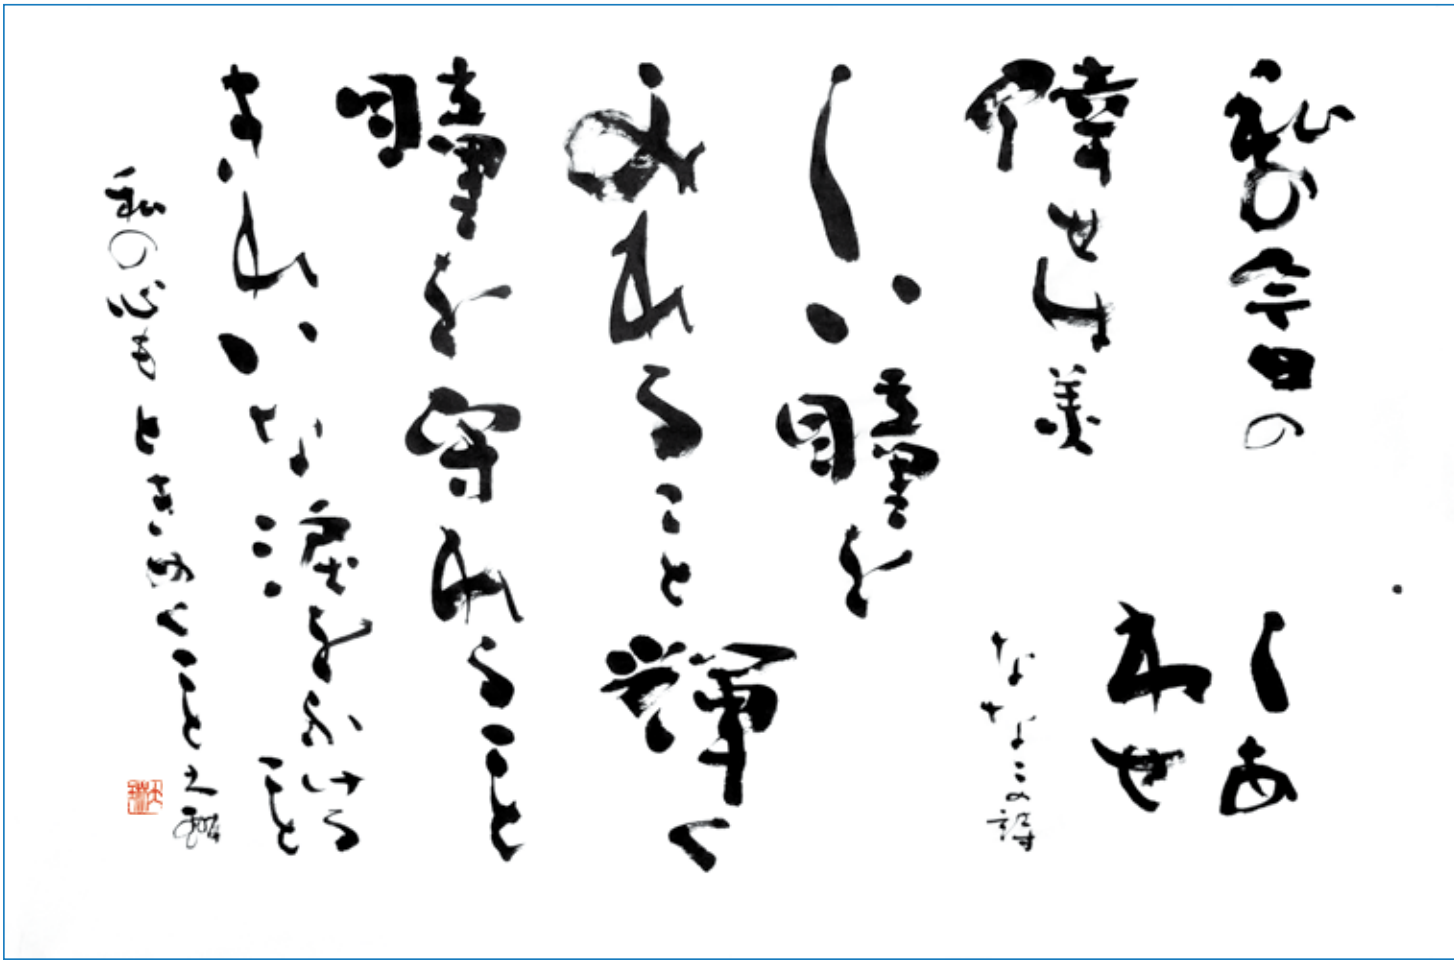 しあ
わせ
ななこの詩
私の今日の
倖せは美
しい瞳を
みれること輝く
瞳を守れること
きれいな涙を こと
私の心もときめくこと